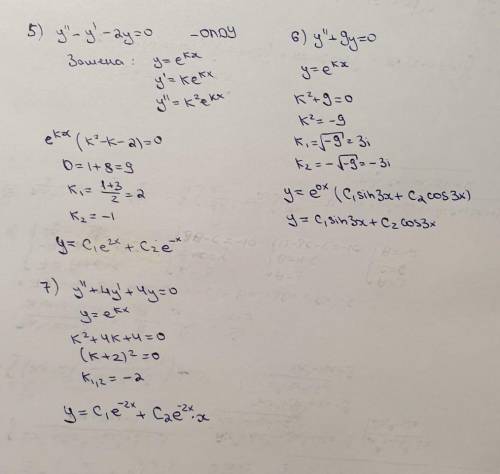 5) y'' - y' - 2y = 0 - ОЛДУ
Замена: y = e^{kx}
y' = ke^{kx}
y'' = k²e^{kx}
e^{kx}(k² - k - 2) = 0
D = 1 + 8 = 9
k₁ = (1+3)/2 = 2
k₂ = -1
y = C₁e^{2x} + C₂e^{-x}
6) y'' + 9y = 0
y = e^{kx}
k² + 9 = 0
k² = -9
k₁ = √-9 = 3i
k₂ = -√-9 = -3i
y = e^{0x}(C₁sin3x + C₂cos3x)
y = C₁sin3x + C₂cos3x
7) y'' + 4y' + 4y = 0
y = e^{kx}
k² + 4k + 4 = 0
(k + 2)² = 0
k₁,₂ = -2
y = C₁e^{-2x} + C₂e^{-2x}·x